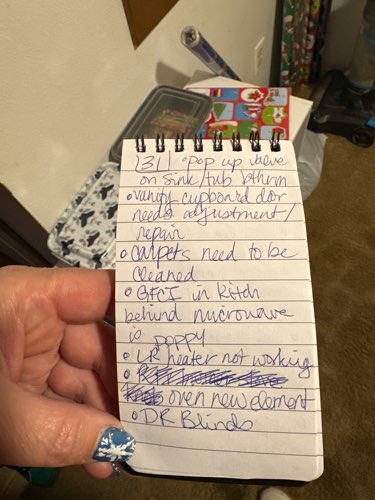 131 • pop up valve
on sink/tub bthrm
• vanity cupboard door
needs adjustment/
repair
• carpets need to be
cleaned
• GFCI in kitch
behind microwave
is poppy
• LR heater not working
•
oven new element
• DR Blinds